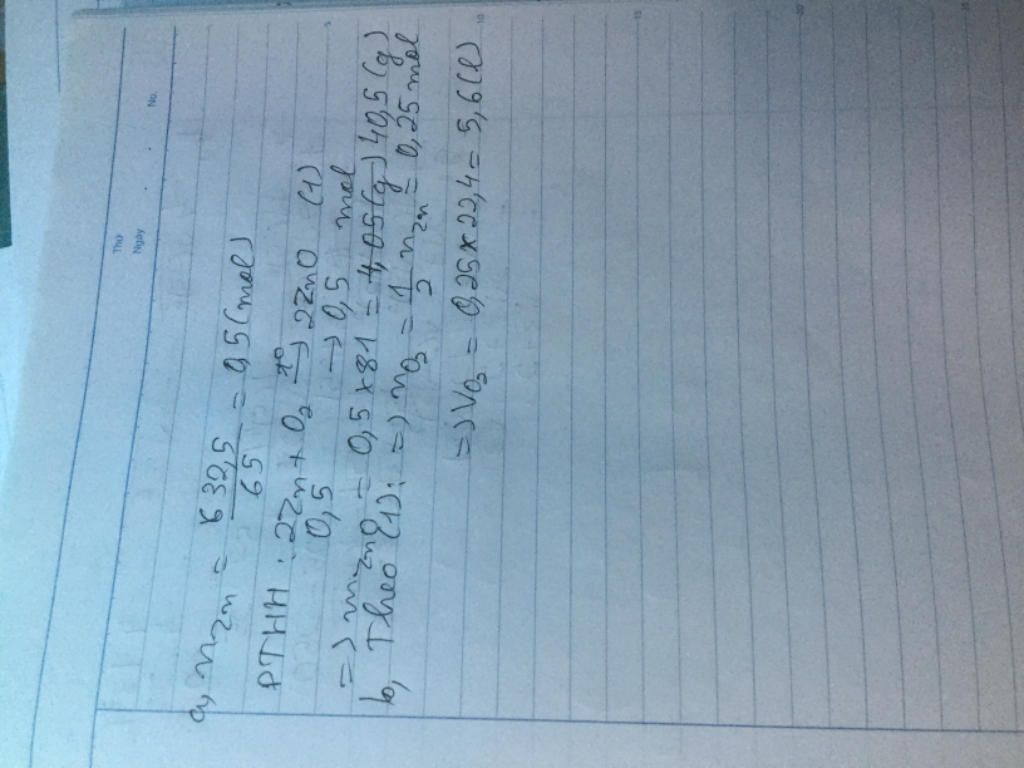 Thứ
Ngày
No.
a, nZn = 32,5/65 = 0,5 (mol)
PTHH : 2Zn + O2 -t°-> 2ZnO (1)
0,5 -> 0,5 mol
=> mZnO = 0,5 x 81 = 4,05(g) 40,5 (g)
b, Theo (1): => nO2 = 1/2 nZn = 0,25 mol
=> VO2 = 0,25 x 22,4 = 5,6 (l)
5
10
15
20
25